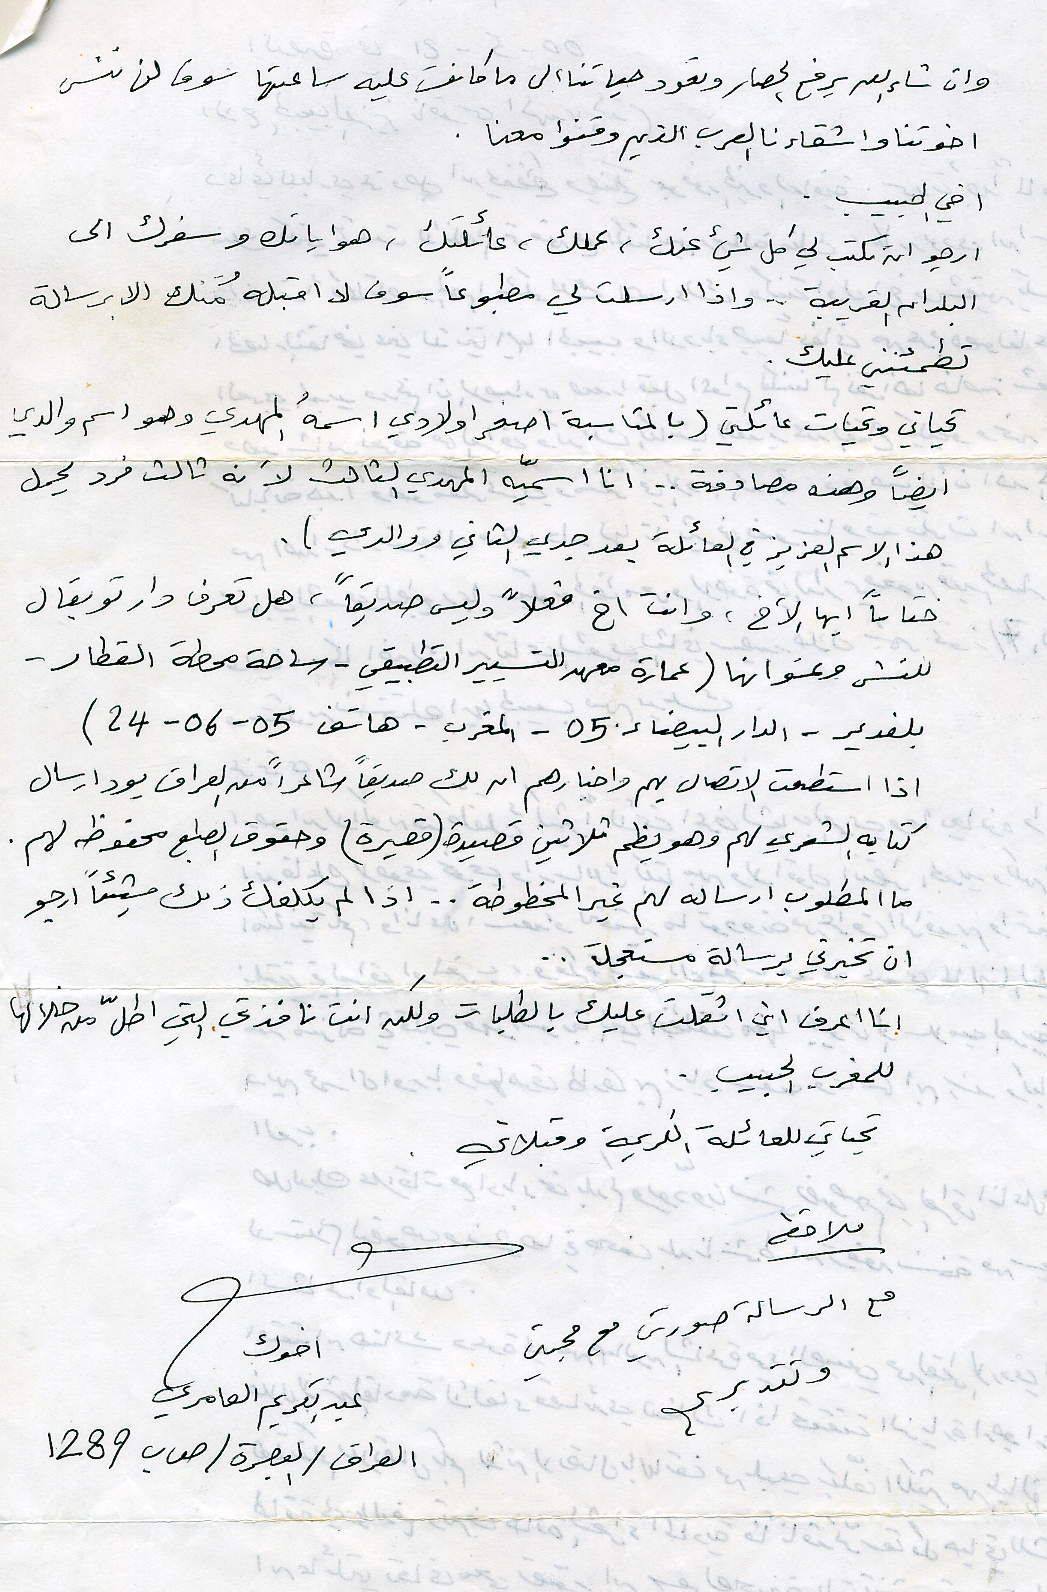 وان شاء الله يرفع الحصار وتعود حياتنا الى ما كانت عليه ساعتها سوف لن ننسى
اخوتنا واشقاءنا العرب الذين وقفوا معنا .
اخي الحبيب .
ارجو ان تكتب لي كل شيئ عنك ، عملك ، عائلتك ، هواياتك و سفرك الى
البلدان القريبة .. واذا ارسلت لي مطبوعاً سوف لا اقبله مُنك الا برسالة
تطمئنني عليك .
تحياتي وتحيات عائلتي ( بالمناسبة اصغر اولادي اسمهُ المهدي وهو اسم والدي
ايضاً وهذه مصادفة .. انا اسميّه المهدي الثالث لأنه ثالث فرد يحمل
هذا الاسم العزيز في العائلة بعد جدي الثاني ووالدي ) .
ختاماً ايها الأخ ، وانت اخ فعلاً وليس صديقاً ، هل تعرف دار توبقال
للنشر وعنوانها ( عمارة معهد التسيير التطبيقي - ساحة محطة القطار -
بلفدير - الدار البيضاء 05 - المغرب - هاتف 05-06-24 )
اذا استطعت الاتصال بهم واخبارهم ان لك صديقاً شاعراً من العراق يود ارسال
كتابه الشعري لهم وهو يضم ثلاثين قصيدة (قصيرة) وحقوق الطبع محفوظه لهم .
ما المطلوب ارساله لهم غير المخطوطة .. اذا لم يكلفك ذلك شيئاً ارجو
ان تخبرني برسالة مستعجلة ..
انا اعرف اني اثقلت عليك بالطلبات ولكن انت نافذتي التي اطلّ من خلالها
للمغرب الحبيب .
تحياتي للعائلة الكريمة وقبلاتي .
ملاحظة
مع الرسالة صورتي مع محبتي
وتقديري
اخوك
عبد الكريم العامري
العراق / البصرة / ص.ب 1289